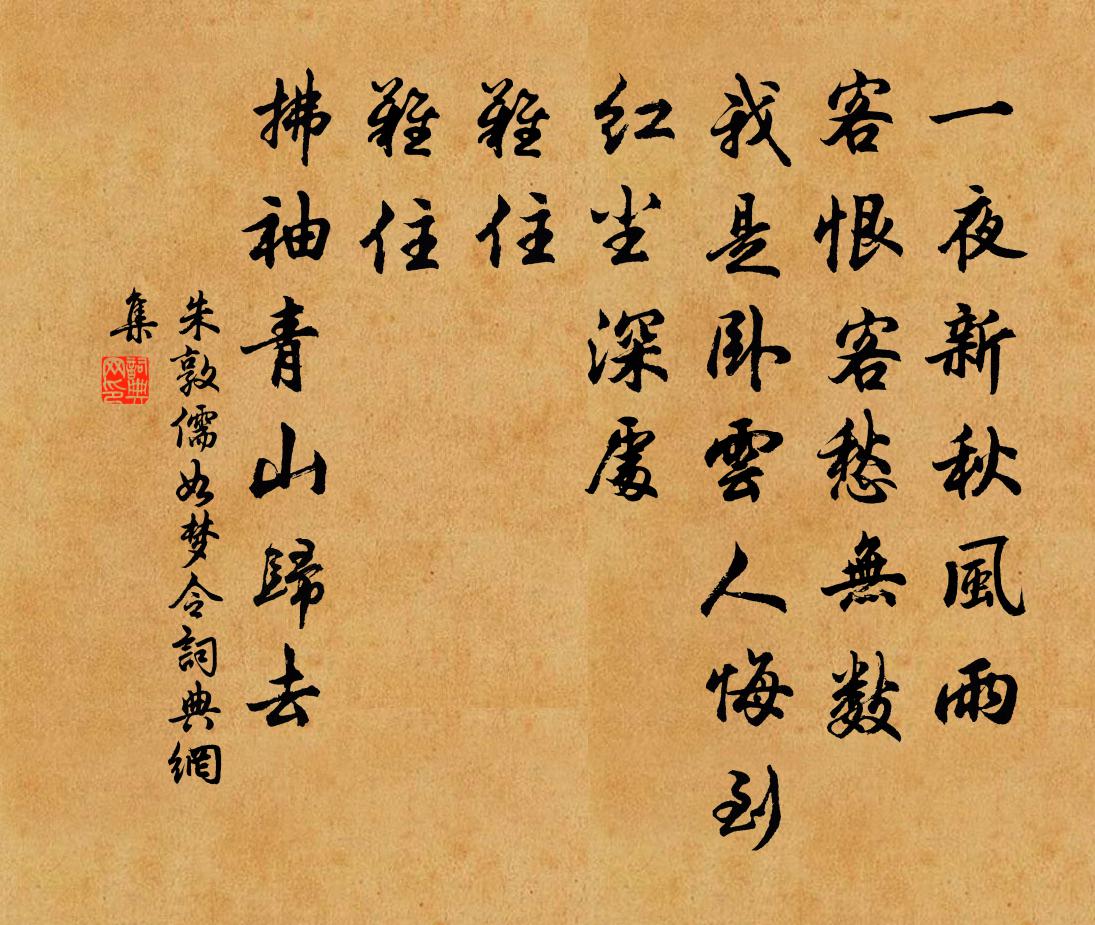 一夜新秋風雨
客恨客愁無數
我是臥雲人悔到
紅尘深處
難住
難住
拂袖青山歸去
朱敦儒如梦令詞典網
集
詞典网印